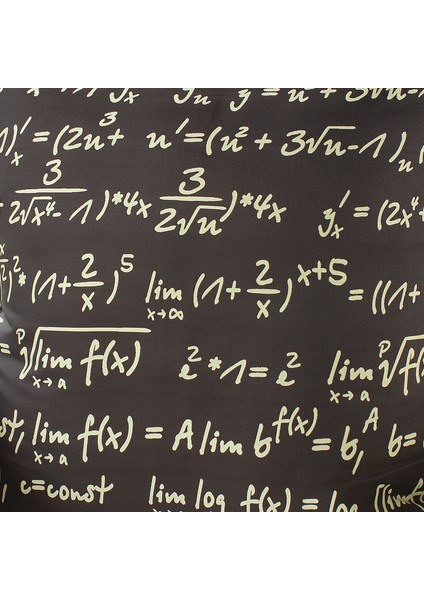 y = u² + 3√u -
1)'ₓ = (2u³ u' = (u² + 3√u - 1)ᵤ
+ 3/(2√(x⁴-1)) *4x 3/(2√u) )*4x y'ₓ = (2x⁴
)² * (1 + 2/x)⁵ lim x→∞ (1 + 2/x)^(x+5) = ((1+
= ᵖ√(lim x→a f(x)) e² * 1 = e² lim x→a ᵖ√f(
st, lim x→a f(x) = A lim b^f(x) = b,ᴬ b =
, c = const lim log f(x) = log (lim f(